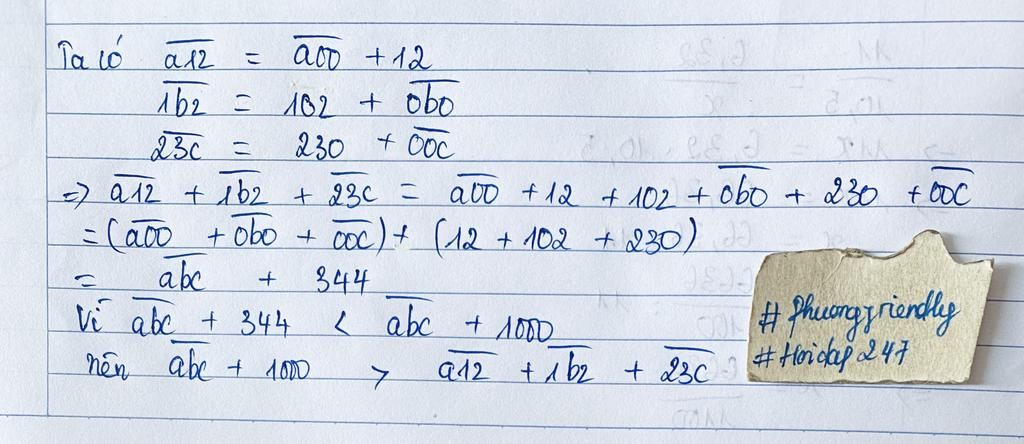 Ta có a̅1̅2̅ = a̅0̅0̅ + 12
1̅b̅2̅ = 102 + 0̅b̅0̅
2̅3̅c̅ = 230 + 0̅0̅c̅
=> a̅1̅2̅ + 1̅b̅2̅ + 2̅3̅c̅ = a̅0̅0̅ + 12 + 102 + 0̅b̅0̅ + 230 + 0̅0̅c̅
= (a̅0̅0̅ + 0̅b̅0̅ + 0̅0̅c̅) + (12 + 102 + 230)
= a̅b̅c̅ + 344
Vì a̅b̅c̅ + 344 < a̅b̅c̅ + 1000
nên a̅b̅c̅ + 1000 > a̅1̅2̅ + 1̅b̅2̅ + 2̅3̅c̅
# Phuongfriendly
# Hoidap247